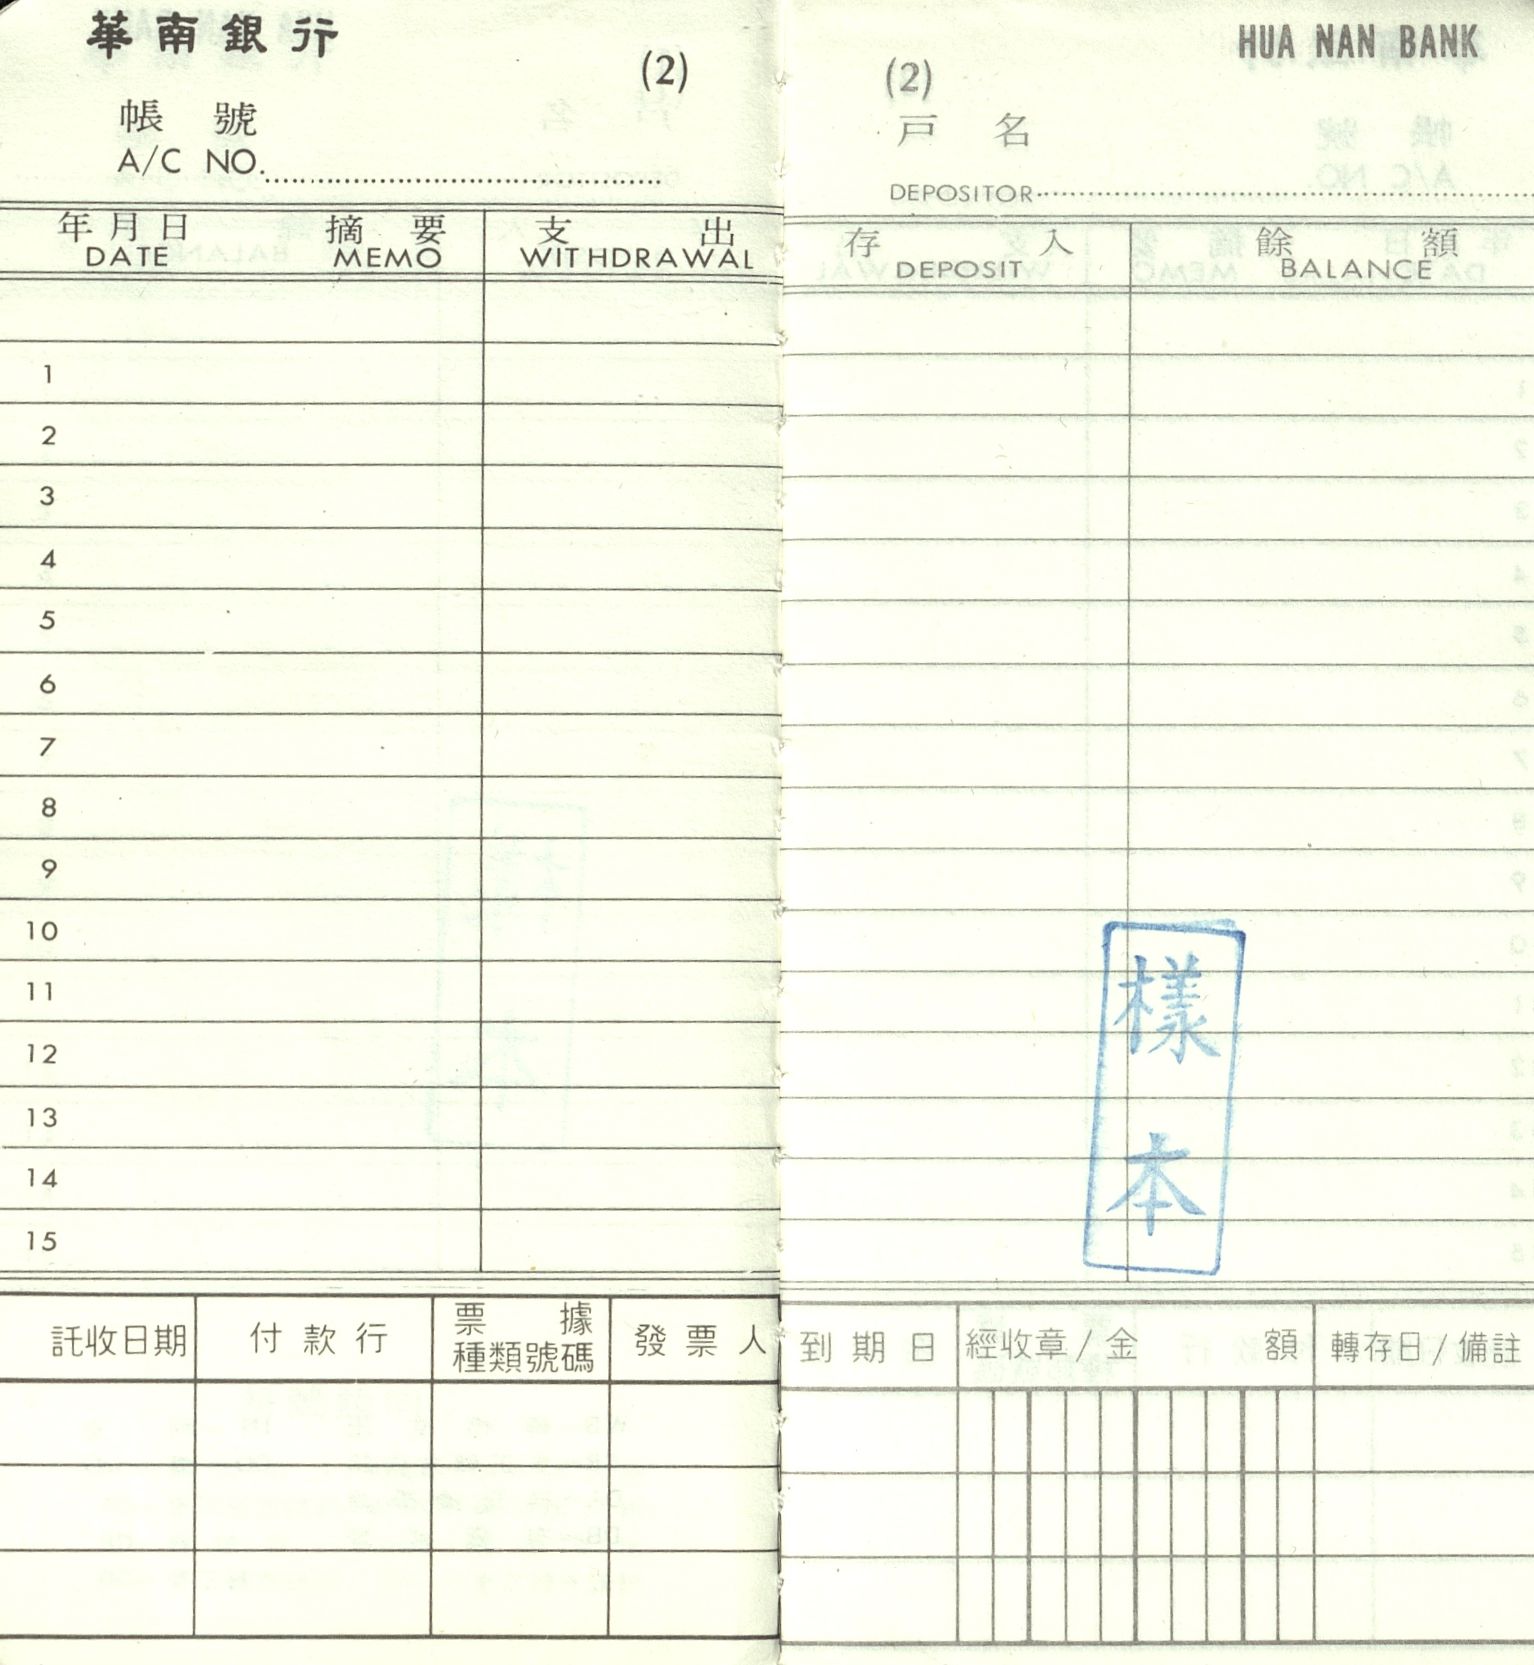 華南銀行
(2)
帳 號
A/C NO.
年月日 摘 要 支 出
DATE MEMO WITHDRAWAL
1
2
3
4
5
6
7
8
9
10
11
12
13
14
15
託收日期 付款行 票據種類號碼 發票人
HUA NAN BANK
(2)
戸 名
DEPOSITOR
存 入 餘 額
DEPOSIT BALANCE
樣本
到期日 經收章/金 額 轉存日/備註